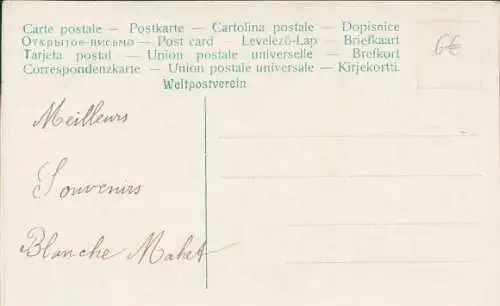 Carte postale — Postkarte — Cartolina postale — Dopisnice
Открытое письмо — Post card    Levelező-Lap — Briefkaart
Tarjeta postal — Union postale universelle — Brefkort
Correspondenzkarte — Union postale universale — Kirjekortti.
Weltpostverein
6€
Meilleurs
Souvenirs
Blanche Mahet